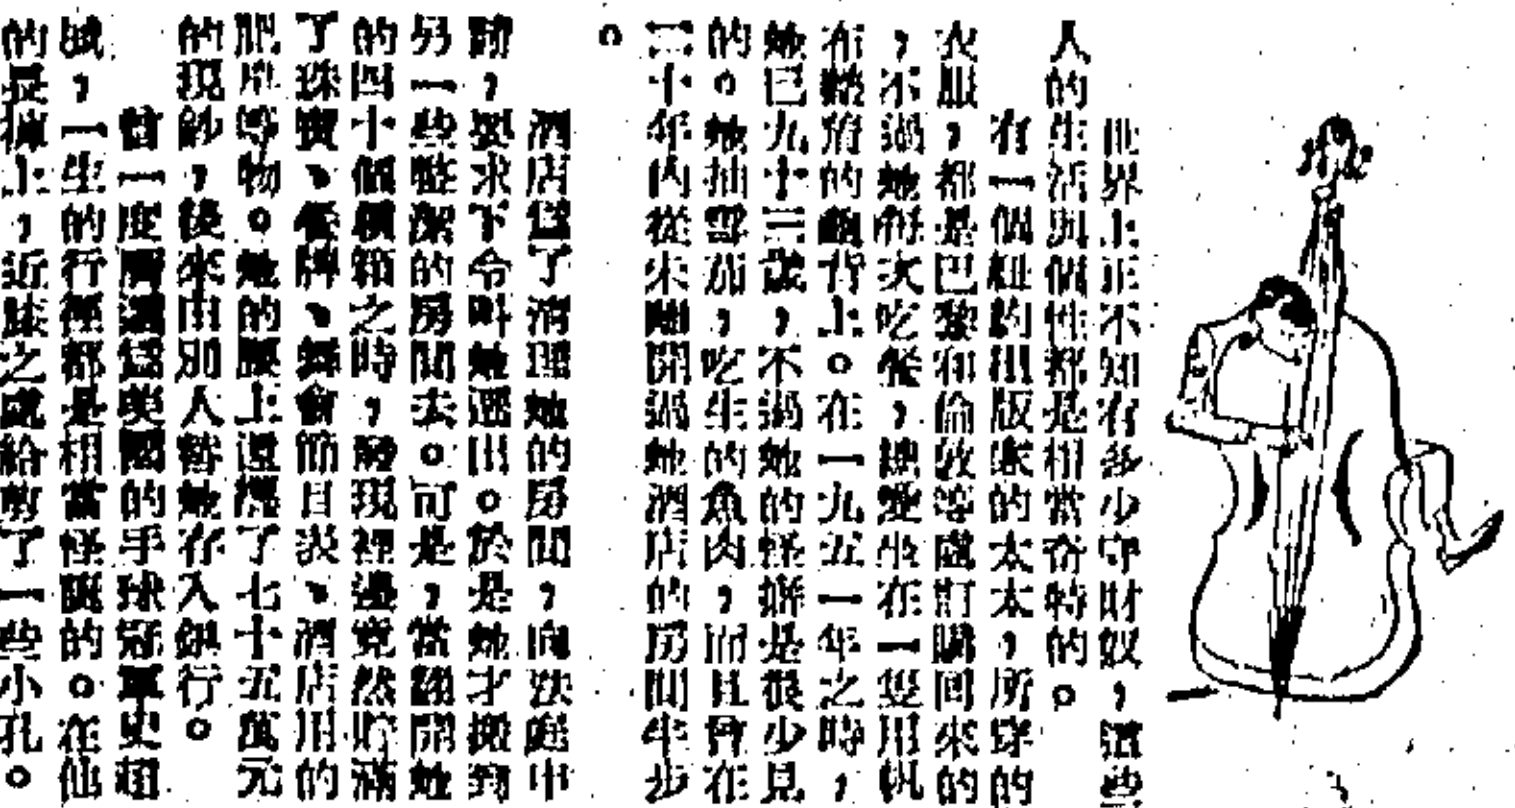 世界上正不知有多少守財奴，這些
人的生活與個性都是相當奇特的。
有一個紐約出版家的太太，所穿的
衣服，都是巴黎和倫敦等處訂購回來的
，不過她每次吃餐，總愛坐在一隻用帆
布縫的龜背上。在一九五一年之時，
她已九十三歲，不過她的怪癖是很少見
的。她抽雪茄，吃生的魚肉，而且曾在
二十年內從未離開過她酒店的房間半步
。
酒店為了清理她的房間，向法庭申
請，要求下令叫她遷出。於是她才搬到
另一些整潔的房間去。可是，當翻開她
的四十個箱之時，發現裡邊竟然貯滿
了珠寶、餐牌、舞會節目表、酒店用的
肥皂等物。她的腰上還纏了七十五萬元
的現鈔，後來由別人替她存入銀行。
曾一度為美國的手球冠軍史超
域，一生的行徑都是相當怪誕的。在他
的長褲上，近膝之處給剪了一些小孔。